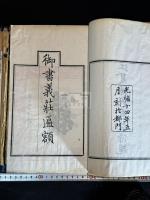 御書義莊匾額
光緒十四年五
月刻於都門